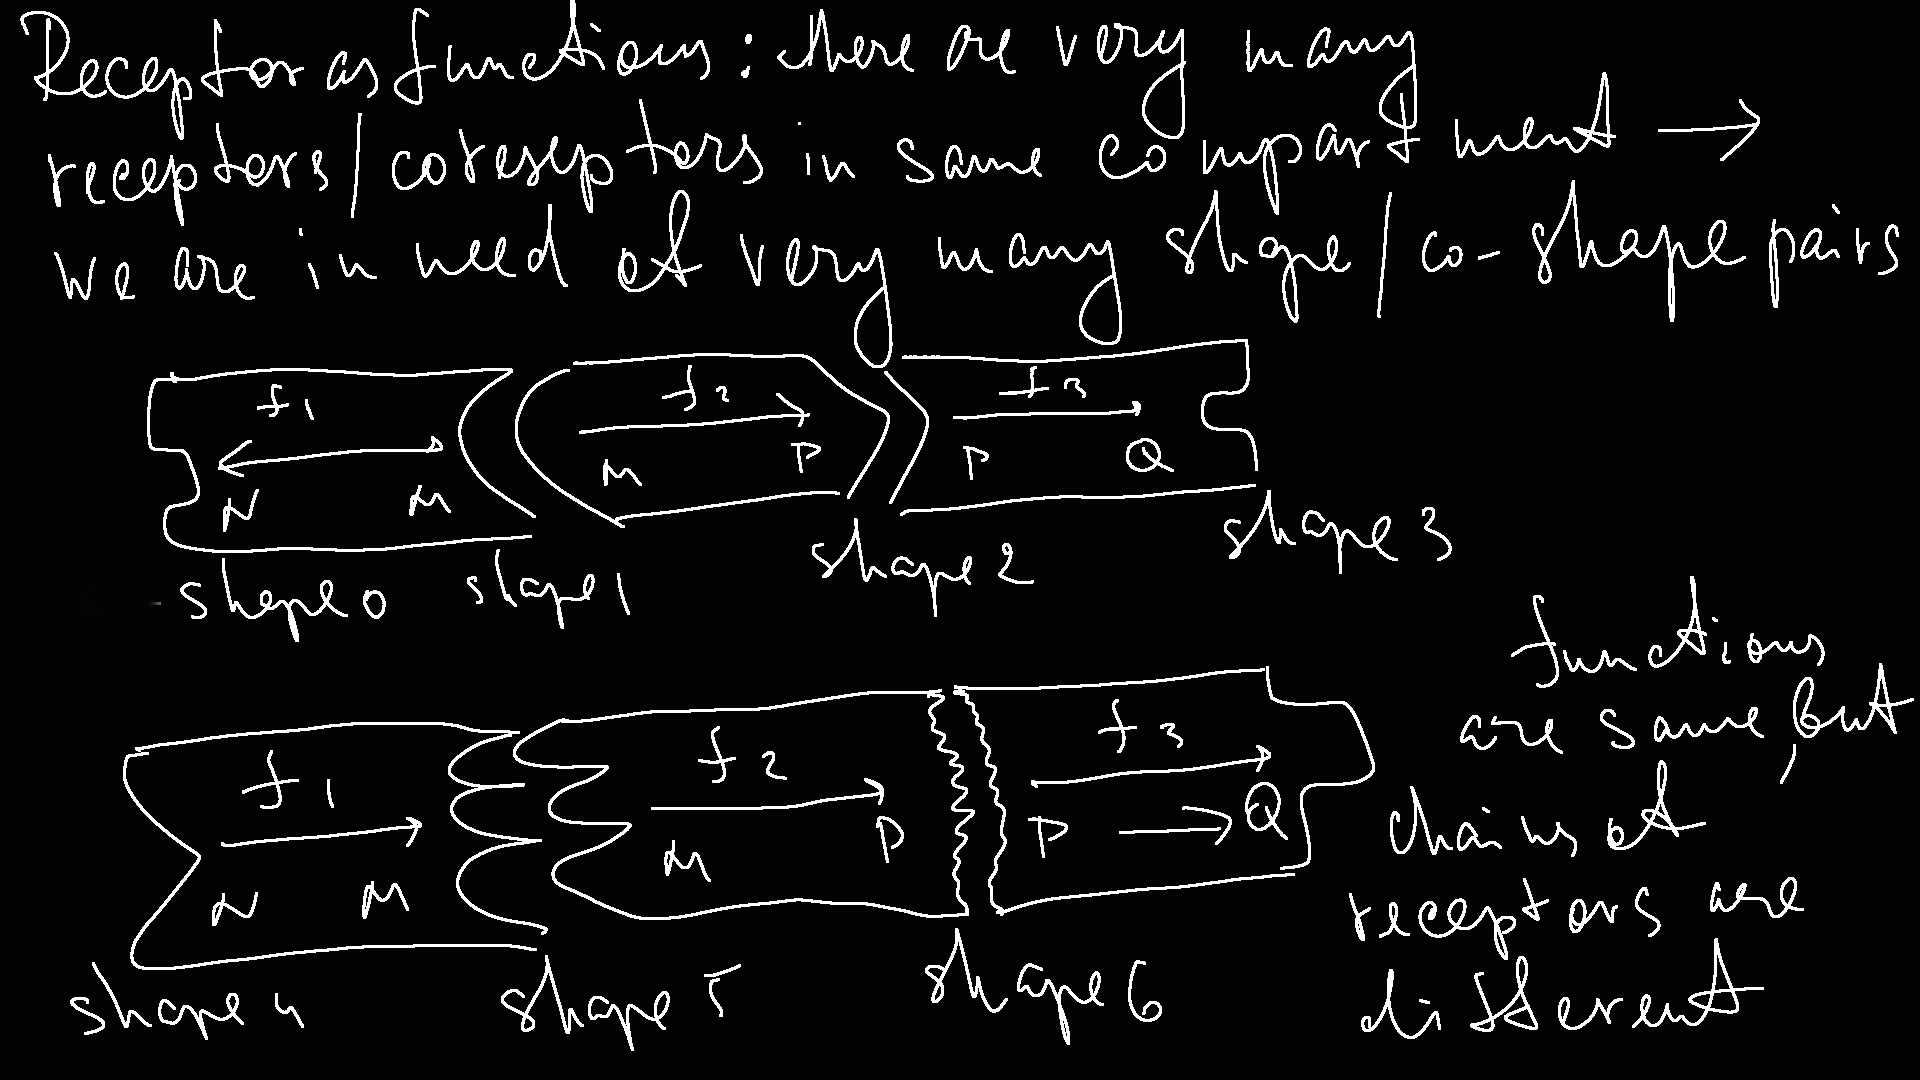 Receptor as functions: there are very many
receptors/coreseptors in same compartment →
we are in need of very many shape/co-shape pairs
f1 f2 f3
N M M P P Q
shape 0 shape 1 shape 2 shape 3
f1 f2 f3
N M M P P → Q
shape 4 shape 5 shape 6
functions
are same, but
chains of
receptors are
different